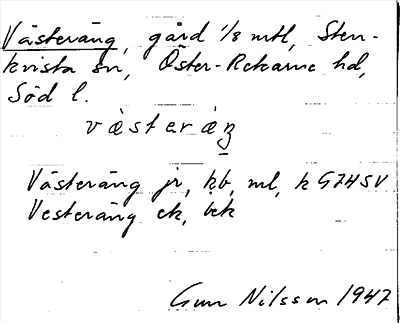 Västeräng, gård 1/8 mtl, Sten-
kvista sn, Öster-Rekarne hd,
Söd l.
västeräŋ
Västeräng jr, kb, ml, k G74SV
Vesteräng ek, bek
Gun Nilsson 1947